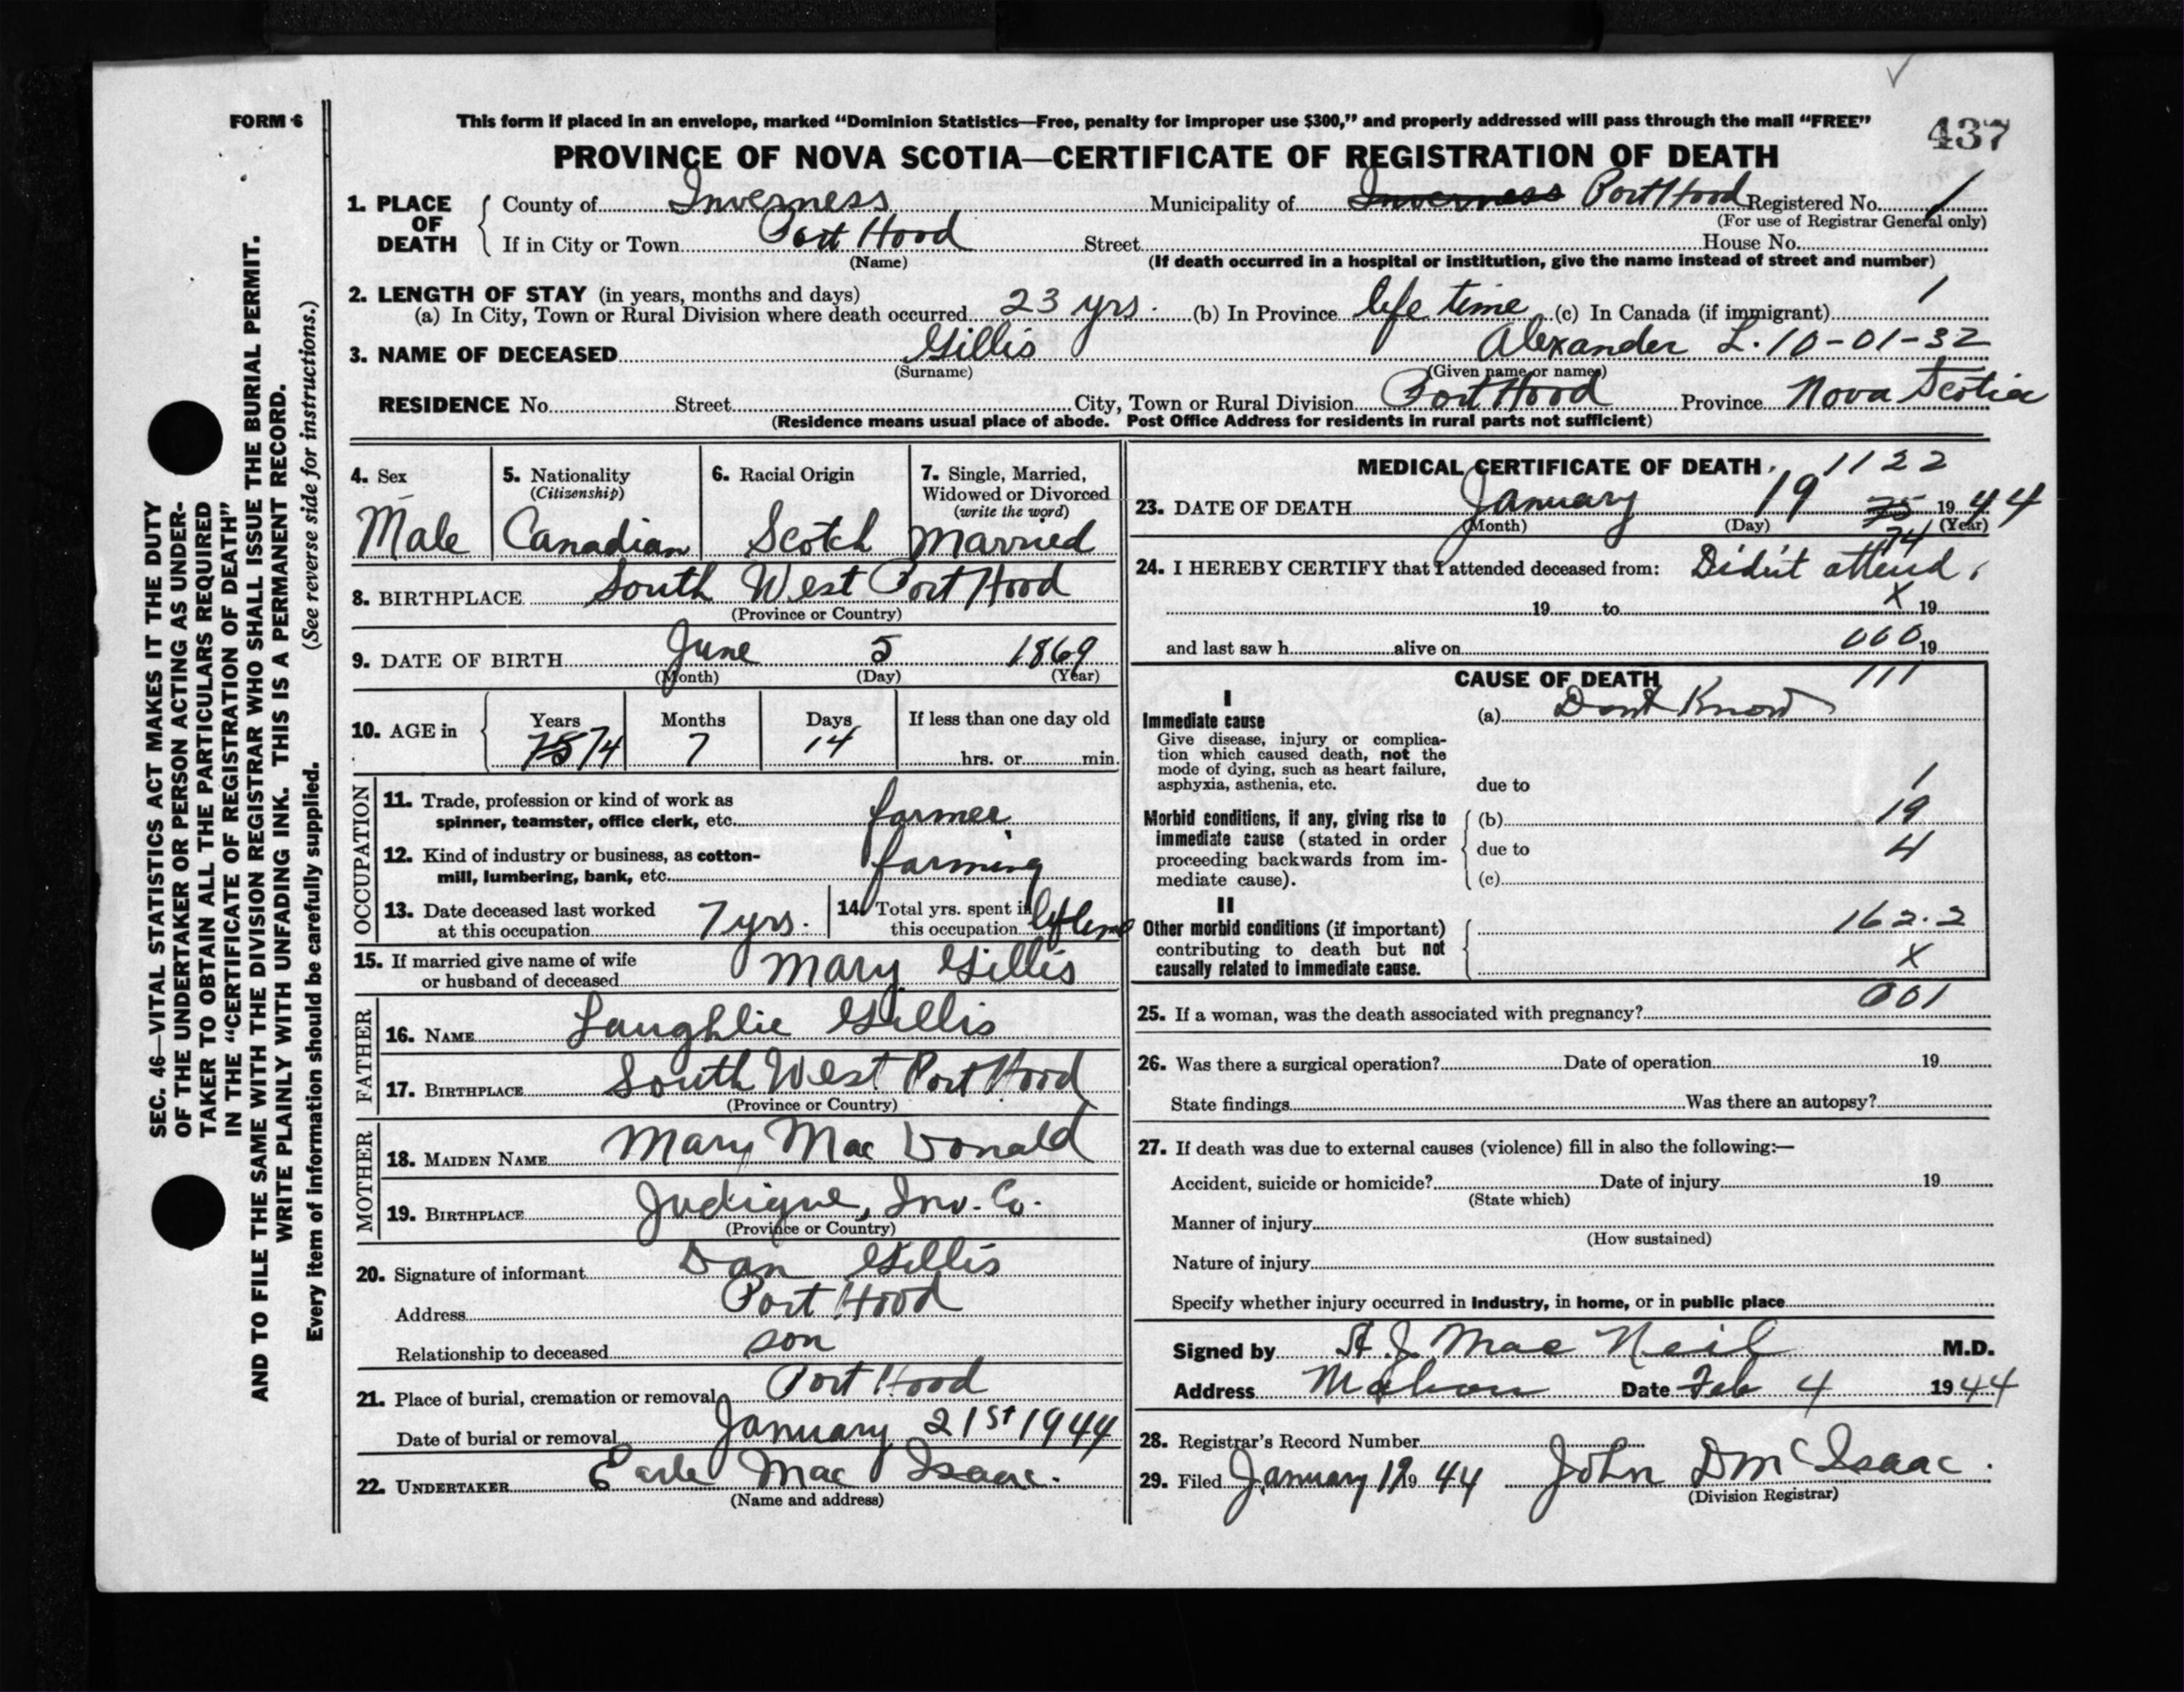 FORM 6
This form if placed in an envelope, marked "Dominion Statistics—Free, penalty for improper use $300," and properly addressed will pass through the mail "FREE"
437
PROVINCE OF NOVA SCOTIA—CERTIFICATE OF REGISTRATION OF DEATH
1. PLACE OF DEATH County of Inverness Municipality of Inverness Port Hood Registered No. 1
(For use of Registrar General only)
If in City or Town Port Hood Street House No.
(Name) (If death occurred in a hospital or institution, give the name instead of street and number)
2. LENGTH OF STAY (in years, months and days) 1
(a) In City, Town or Rural Division where death occurred 23 yrs. (b) In Province life time (c) In Canada (if immigrant)
3. NAME OF DECEASED Gillis Alexander L. 10-01-32
(Surname) (Given name or names)
RESIDENCE No. Street City, Town or Rural Division Port Hood Province Nova Scotia
(Residence means usual place of abode. Post Office Address for residents in rural parts not sufficient)
4. Sex Male
5. Nationality (Citizenship) Canadian
6. Racial Origin Scotch
7. Single, Married, Widowed or Divorced (write the word) Married
8. BIRTHPLACE South West Port Hood
(Province or Country)
9. DATE OF BIRTH June 5 1869
(Month) (Day) (Year)
10. AGE in Years Months Days If less than one day old
75 74 7 14 hrs. or min.
OCCUPATION
11. Trade, profession or kind of work as
spinner, teamster, office clerk, etc. farmer
12. Kind of industry or business, as cotton-
mill, lumbering, bank, etc. farming
13. Date deceased last worked
at this occupation 7 yrs.
14. Total yrs. spent in
this occupation
15. If married give name of wife
or husband of deceased Mary Gillis
FATHER
16. NAME Laughlie Gillis
17. BIRTHPLACE South West Port Hood
(Province or Country)
MOTHER
18. MAIDEN NAME Mary Mac Donald
19. BIRTHPLACE Judique, Inv. Co.
(Province or Country)
20. Signature of informant Dan Gillis
Address Port Hood
Relationship to deceased son
21. Place of burial, cremation or removal Port Hood
Date of burial or removal January 21st 1944
22. UNDERTAKER Earle Mac Isaac.
(Name and address)
MEDICAL CERTIFICATE OF DEATH. 1122
23. DATE OF DEATH January 19 75 1944
(Month) (Day) 74 (Year)
24. I HEREBY CERTIFY that I attended deceased from: Did'nt attend.
19 to X 19
and last saw h alive on 000 19
CAUSE OF DEATH 111
I
Immediate cause (a) Dont Know
Give disease, injury or complica-
tion which caused death, not the
mode of dying, such as heart failure,
asphyxia, asthenia, etc. due to 1
Morbid conditions, if any, giving rise to (b) 19
immediate cause (stated in order due to 4
proceeding backwards from im-
mediate cause). (c)
II
Other morbid conditions (if important) 162.2
contributing to death but not
causally related to immediate cause. X
001
25. If a woman, was the death associated with pregnancy?
26. Was there a surgical operation? Date of operation 19
State findings Was there an autopsy?
27. If death was due to external causes (violence) fill in also the following:—
Accident, suicide or homicide? Date of injury 19
(State which)
Manner of injury
(How sustained)
Nature of injury
Specify whether injury occurred in industry, in home, or in public place
Signed by A. J. Mac Neil M.D.
Address Mabou Date Feb 4 1944
28. Registrar's Record Number
29. Filed January 19 19 44 John D McIsaac.
(Division Registrar)
SEC. 46—VITAL STATISTICS ACT MAKES IT THE DUTY
OF THE UNDERTAKER OR PERSON ACTING AS UNDER-
TAKER TO OBTAIN ALL THE PARTICULARS REQUIRED
IN THE "CERTIFICATE OF REGISTRATION OF DEATH"
AND TO FILE THE SAME WITH THE DIVISION REGISTRAR WHO SHALL ISSUE THE BURIAL PERMIT.
WRITE PLAINLY WITH UNFADING INK. THIS IS A PERMANENT RECORD.
Every item of information should be carefully supplied. (See reverse side for instructions.)